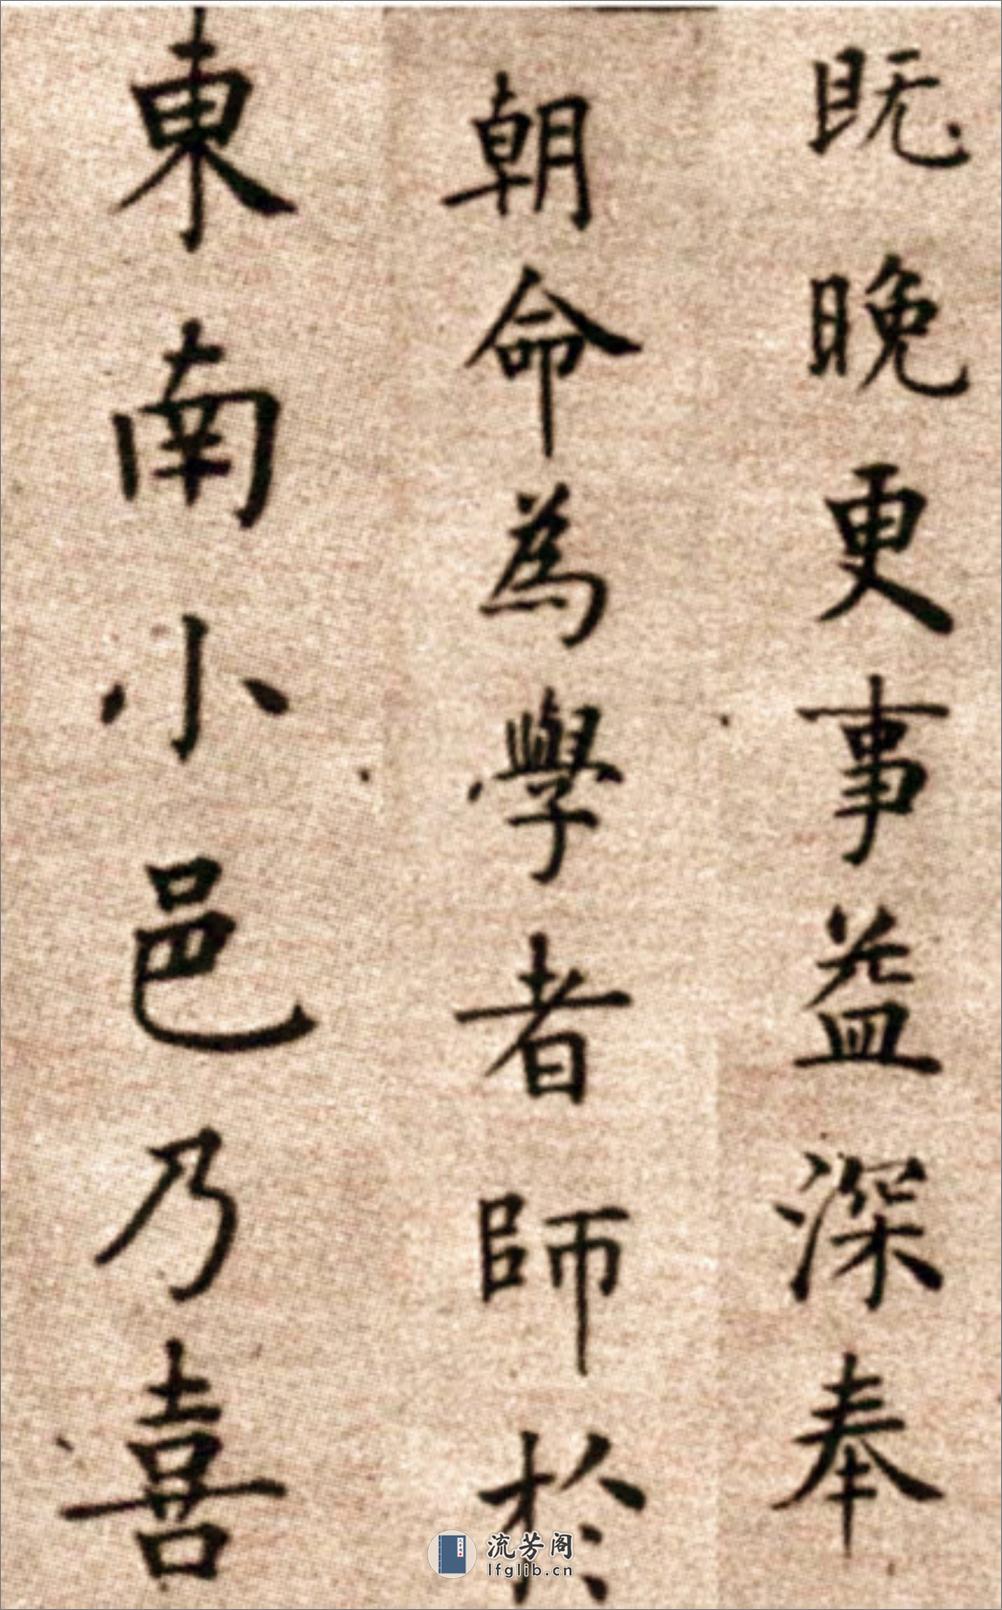 既晚更事益深奉
朝命為學者師於
東南小邑乃喜
流芳阁
lfglib.cn